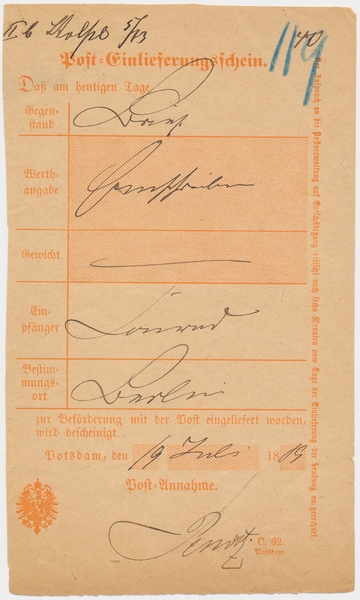 II b Stolpe 5/13
119
Post-Einlieferungsschein.
Daß am heutigen Tage
Gegen-
stand
Brief
Werth-
angabe
Einschreiben
Gewicht
Em-
pfänger
Conrad
Bestim-
mungs-
ort
Berlin
zur Beförderung mit der Post eingeliefert worden,
wird bescheinigt.
Potsdam, den 19 Juli 18
Post-Annahme.
C. 62.
Potsdam
Der Anspruch an die Postverwaltung auf Entschädigung erlischt nach sechs Monaten vom Tage der Einlieferung der Sendung an gerechnet.